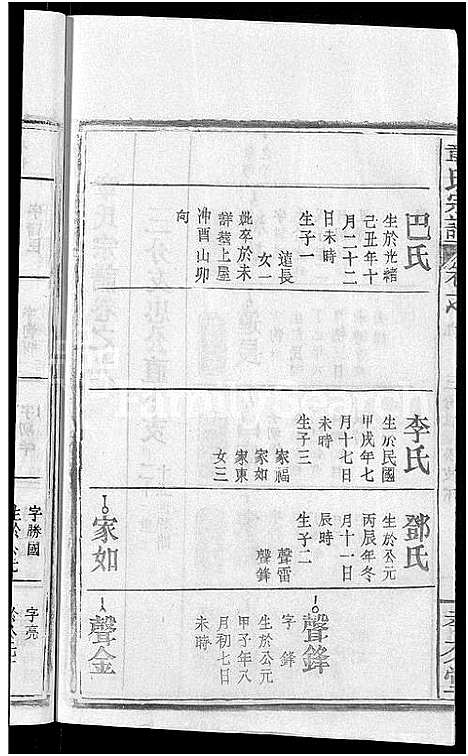 氏宗譜
巴氏
生於光緒
己丑年十
月二十二
日未時
生子一
遠長
女一
妣卒於未
詳葬上屋
沖酉山卯
向
李氏
生於民國
甲戌年七
月十七日
未時
生子三
家福
家如
家東
女三
鄧氏
生於公元
丙辰年冬
月十一日
辰時
生子二
聲雷
聲鋒
聲鋒
字鋒
生於公元
甲子年八
月初七日
未時
家如
聲金
字勝國
生於公元
字亮
於公元